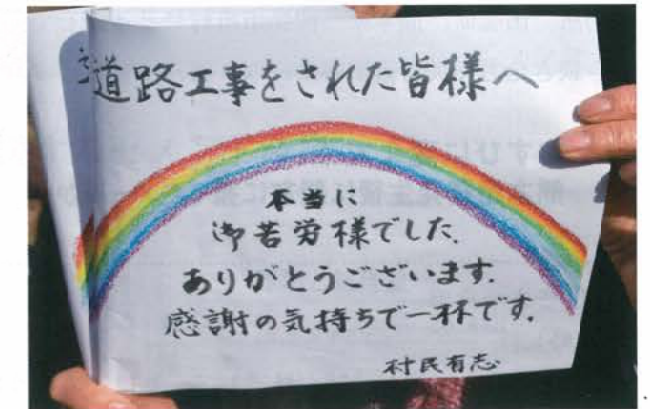 道路工事をされた皆様へ
本当に
御苦労様でした。
ありがとうございます。
感謝の気持ちで一杯です。
村民有志